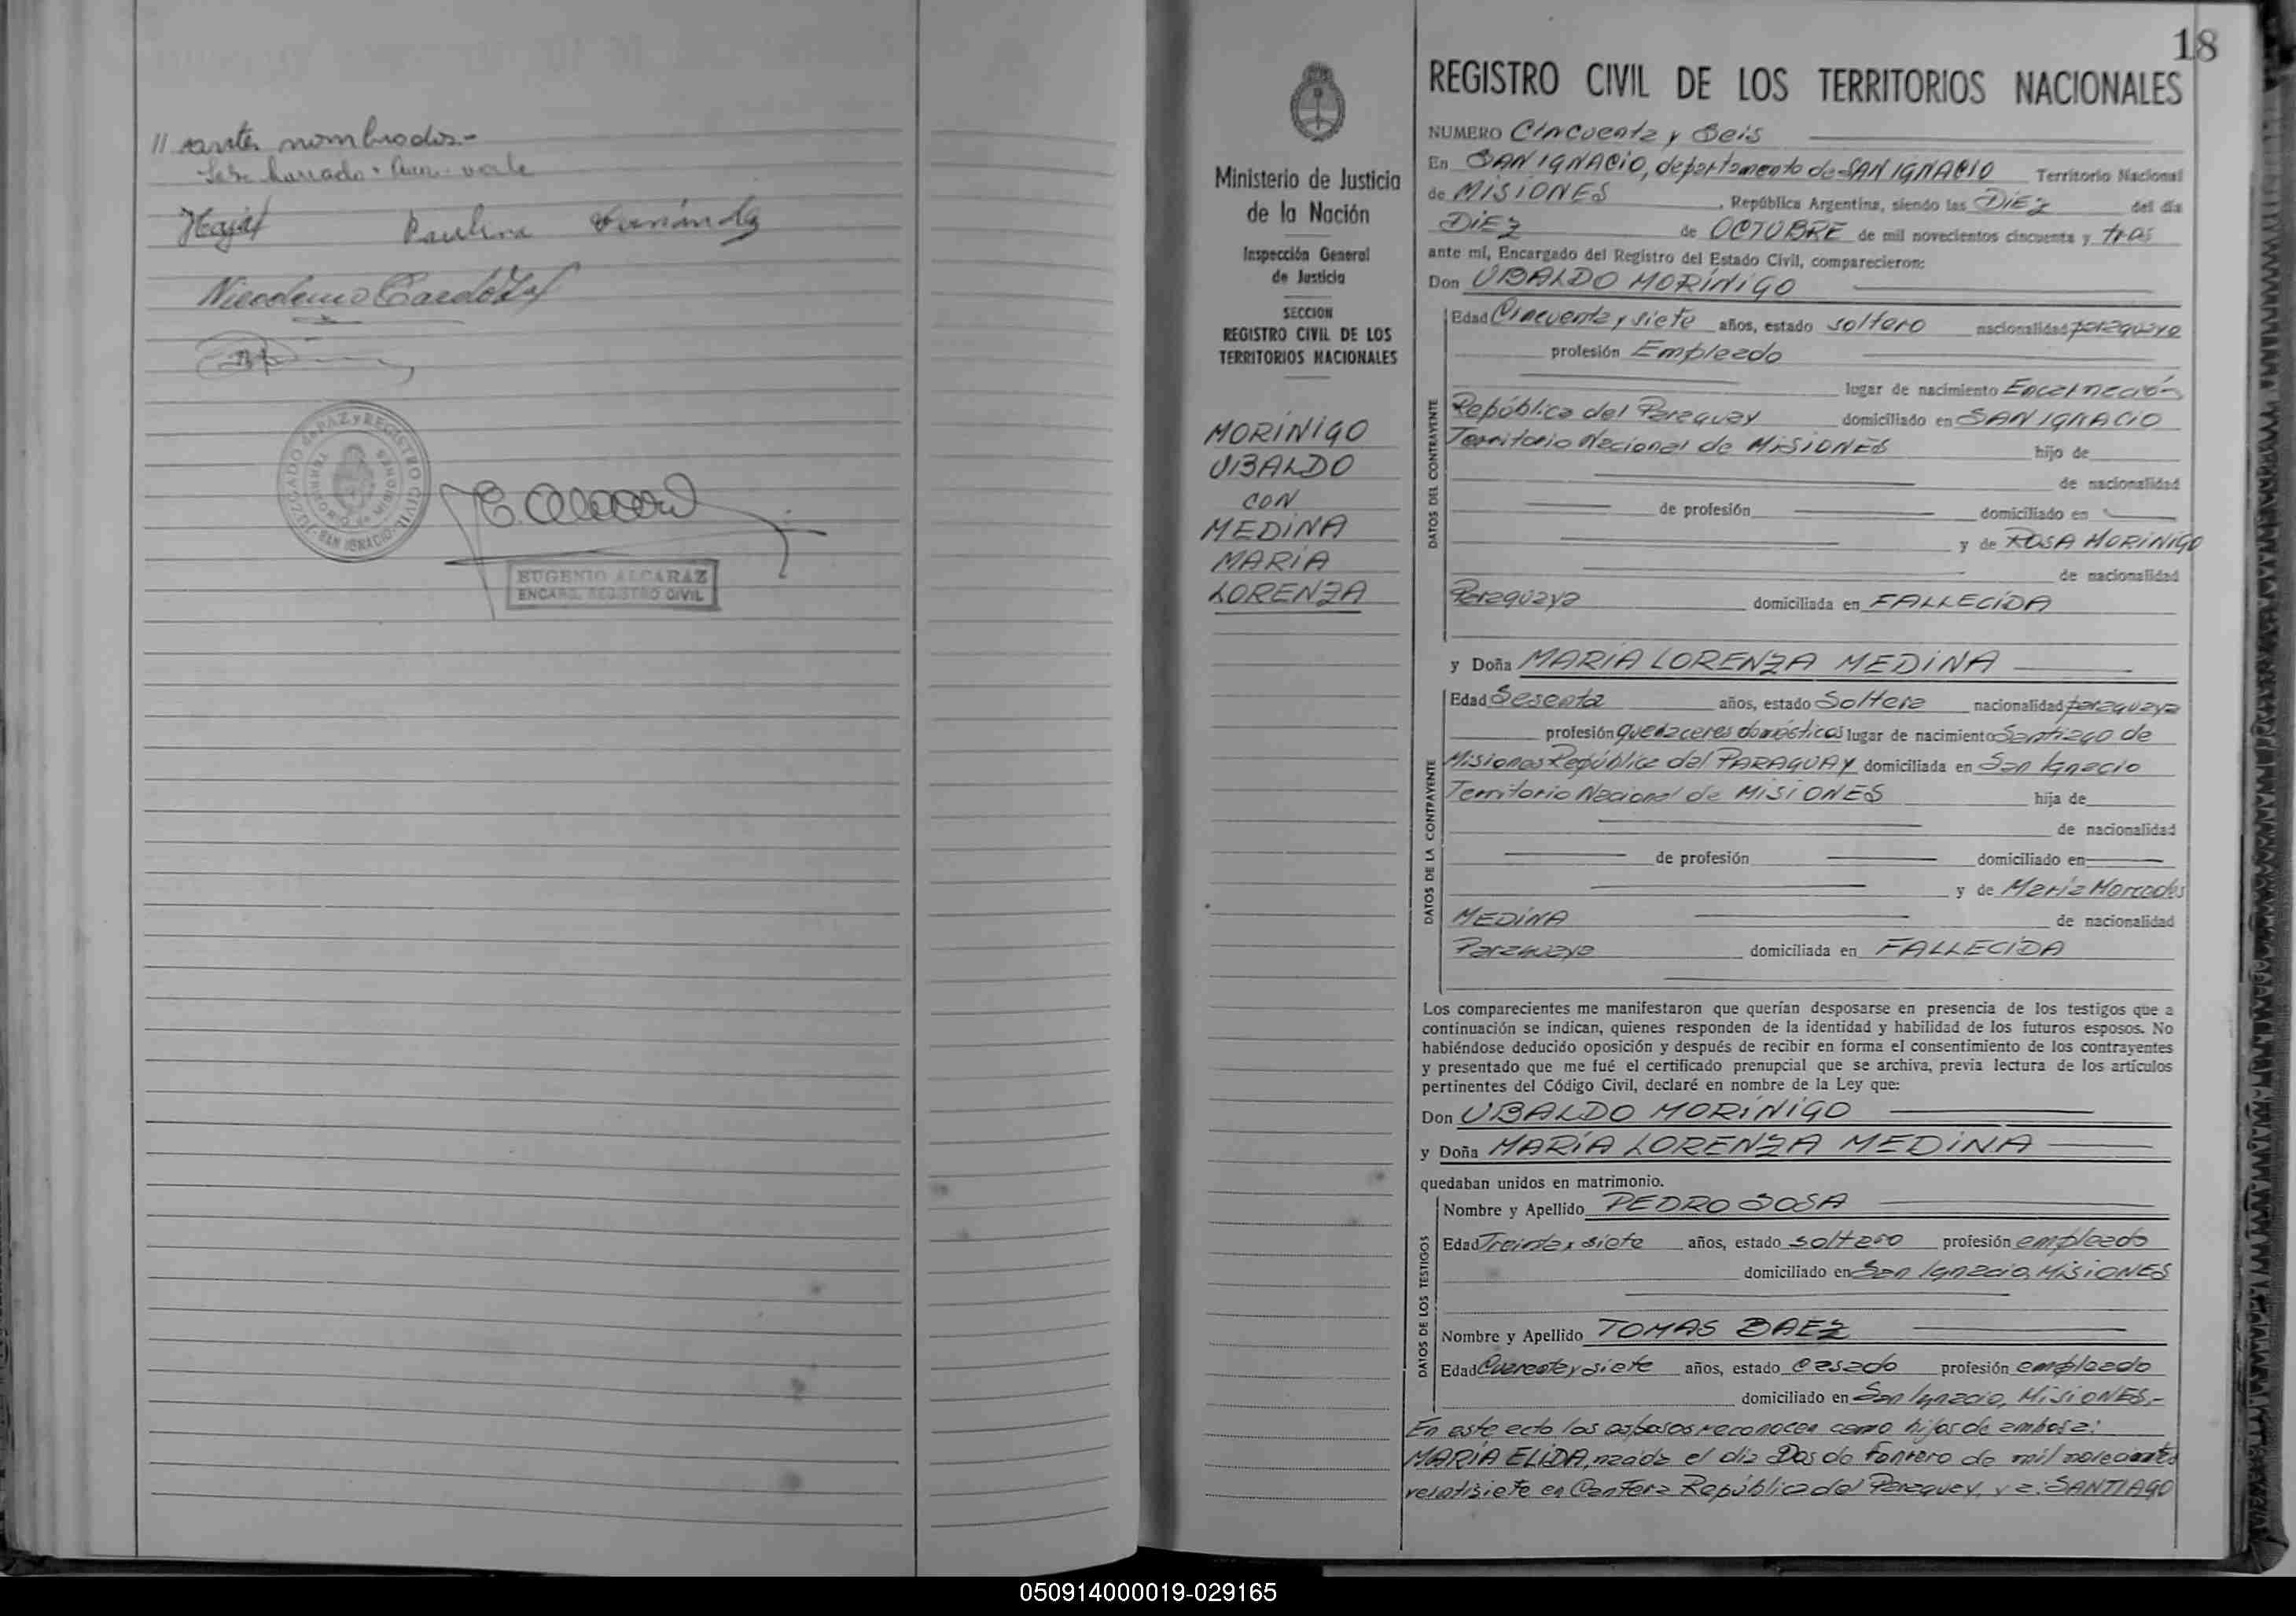 // antes nombrados.-
Paulina Fernández
Nicodemo Cardozo
JUZGADO de PAZ y REGISTRO CIVIL
TERRITORIO de MISIONES
SAN IGNACIO
EUGENIO ALCARAZ
ENCARG. REGISTRO CIVIL
18
Ministerio de Justicia
de la Nación
Inspección General
de Justicia
SECCION
REGISTRO CIVIL DE LOS
TERRITORIOS NACIONALES
MORÍNIGO
UBALDO
CON
MEDINA
MARIA
LORENZA
REGISTRO CIVIL DE LOS TERRITORIOS NACIONALES
NUMERO Cincuenta y Seis
En SAN IGNACIO, departamento de SAN IGNACIO Territorio Nacional
de MISIONES, República Argentina, siendo las DIEZ del día
DIEZ de OCTUBRE de mil novecientos cincuenta y tres
ante mí, Encargado del Registro del Estado Civil, comparecieron:
Don UBALDO MORÍNIGO
DATOS DEL CONTRAYENTE
Edad Cincuenta y siete años, estado soltero nacionalidad paraguaya
profesión Empleado
lugar de nacimiento Encarnación
República del Paraguay domiciliado en SAN IGNACIO
Territorio Nacional de MISIONES hijo de
de nacionalidad
de profesión domiciliado en
y de ROSA MORINIGO
de nacionalidad
Paraguaya domiciliada en FALLECIDA
y Doña MARIA LORENZA MEDINA
DATOS DE LA CONTRAYENTE
Edad Sesenta años, estado Soltera nacionalidad paraguaya
profesión quehaceres domésticos lugar de nacimiento Santiago de
Misiones República del PARAGUAY domiciliada en San Ignacio
Territorio Nacional de MISIONES hija de
de nacionalidad
de profesión domiciliado en
y de María Mercedes
MEDINA de nacionalidad
Paraguaya domiciliada en FALLECIDA
Los comparecientes me manifestaron que querían desposarse en presencia de los testigos que a
continuación se indican, quienes responden de la identidad y habilidad de los futuros esposos. No
habiéndose deducido oposición y después de recibir en forma el consentimiento de los contrayentes
y presentado que me fué el certificado prenupcial que se archiva, previa lectura de los artículos
pertinentes del Código Civil, declaré en nombre de la Ley que:
Don UBALDO MORÍNIGO
y Doña MARÍA LORENZA MEDINA
quedaban unidos en matrimonio.
DATOS DE LOS TESTIGOS
Nombre y Apellido PEDRO SOSA
Edad Treinta y siete años, estado soltero profesión empleado
domiciliado en San Ignacio, MISIONES
Nombre y Apellido TOMAS BAEZ
Edad Cuarenta y siete años, estado casado profesión empleado
domiciliado en San Ignacio, MISIONES.-
En este acto los esposos reconocen como hijos de ambos a:
MARÍA ELIDA, nacida el día Dos de de mil novecientos
veintisiete en República del Paraguay, y a: SANTIAGO
050914000019-029165